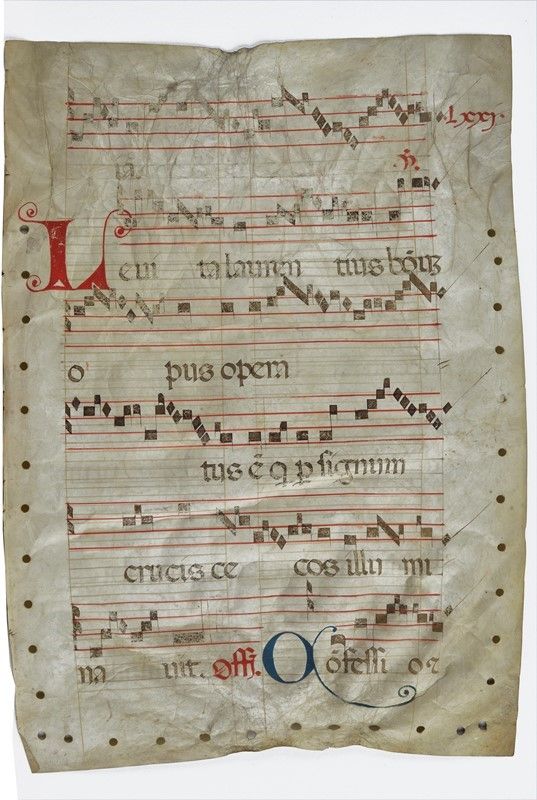 LXXI.
ia.
℣.
Leui ta lauren tius bōuz
o pus opera
tus ē q ꝑ signum
crucis ce cos illu mi
na uit. Offi. Cōfessi o ⁊